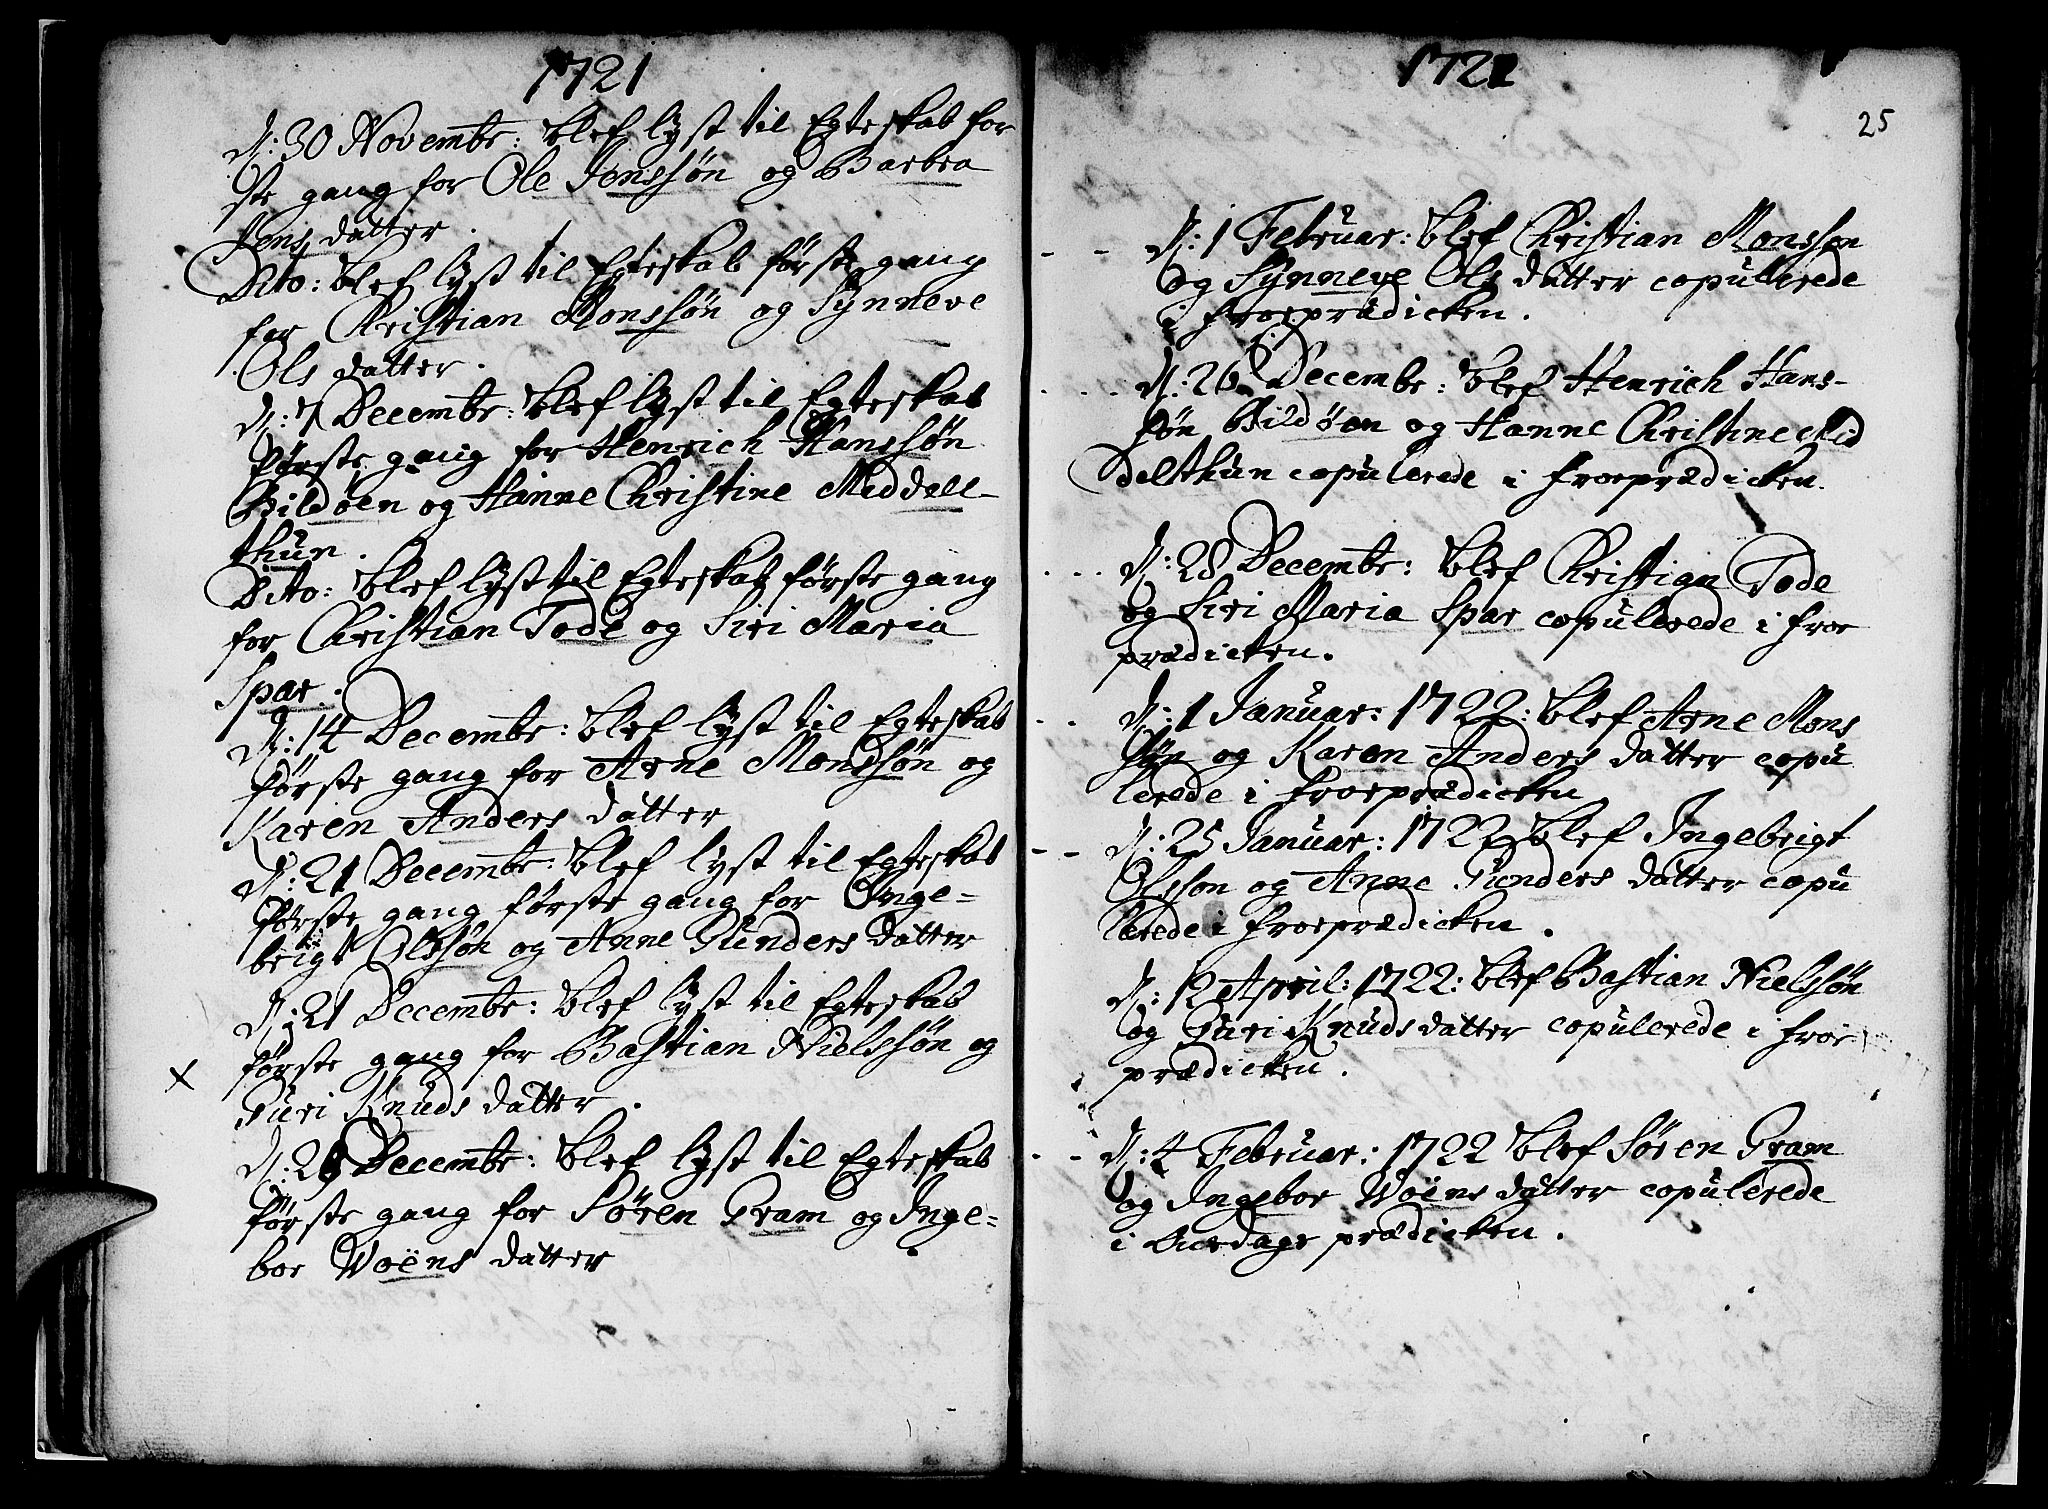 1721
d: 30 Novembr: blef lyst til Egteskab før
ste gang for Ole Jenssøn og Barbra
Jens datter.
Dito: blef lyst til Egteskab første gang
for Christian Monssøn og Synneve
Ols datter.
d: 7 Decembr: blef lyst til Egteskab
første gang for Henrich Hanssøn
Bildøen og Hanne Christine Meddell-
thun.
Dito: blef lyst til Egteskab første gang
for Christian Tode og Siri Maria
Spar.
d: 14 Decembr: blef lyst til Egteskab
første gang for Arne Monssøn og
Karen Anders datter
d: 21 Decembr: blef lyst til Egteskab
første gang første gang for Inge-
brigt Olssøn og Anne Gunders datter
d: 21 Decembr: blef lyst til Egteskab
første gang for Bastian Nielssøn og
x
Guri Knuds datter.
d: 28 Decembr: blef lyst til Egteskab
første gang for Søren Gram og Inge-
bor Woëns datter
1721
25
d: 1 Februar: blef Christian Monsson
og Synneve Ols datter copulerede
i froeprædicken.
d: 26 Decembr: blef Henrich Hans-
søn Bildøen og Hanne Christine Mid
delthun copulerede i froeprædicken.
d: 28 Decembr: blef Christian Tode
og Siri Maria Spar copulerede i froe
prædicken.
d: 1 Januar: 1722: blef Arne Mons
søn og Karen Anders datter copu
lerede i froeprædicken
d: 25 Januar: 1722 blef Ingebrigt
Olsson og Anne Gunders datter copu
lerede i froeprædicken.
d: 12 April: 1722: blef Bastian Nielssøn
og Guri Knuds datter copulerede i froe
prædicken.
d: 4 Februar: 1722 blef Søren Gram
og Ingebor Woëns datter copulerede
i Onsdags prædicken.